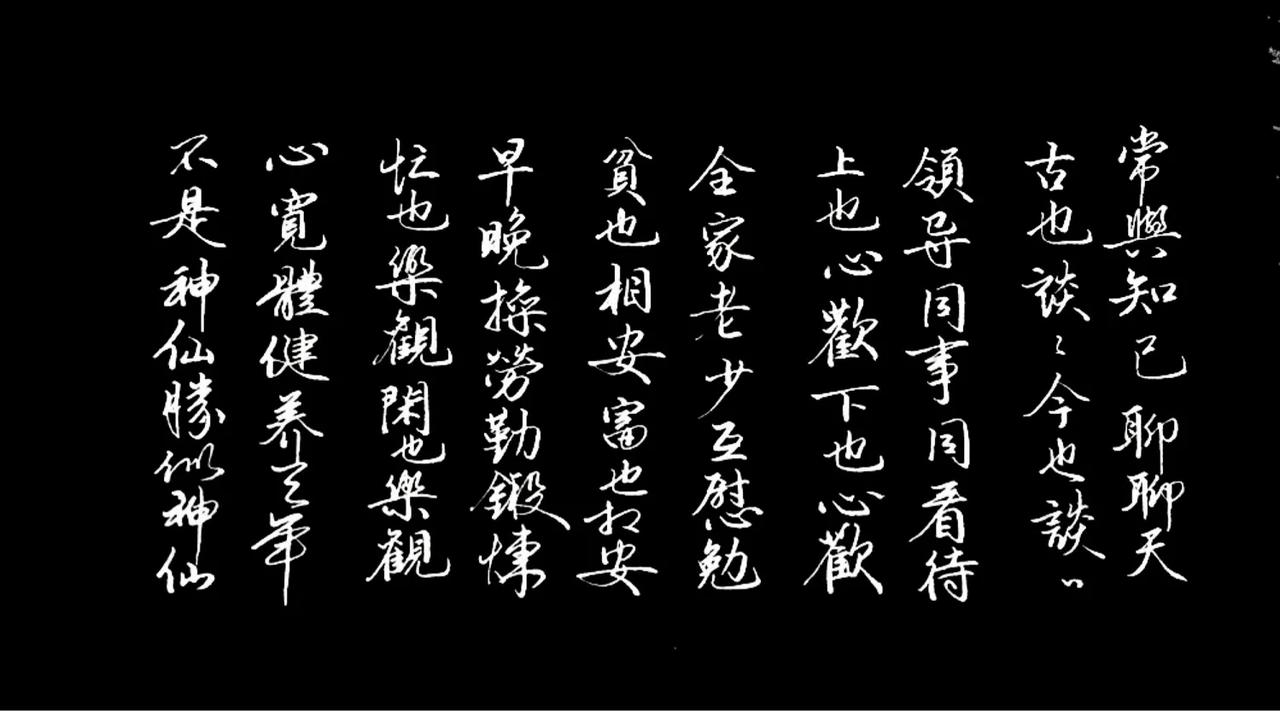 常與知己聊聊天
古也談〻今也談〻
領导同事同看待
上也心歡下也心歡
全家老少互慰勉
貧也相安富也相安
早晚操勞勤鍛煉
忙也樂觀閑也樂觀
心寬體健养天年
不是神仙勝似神仙